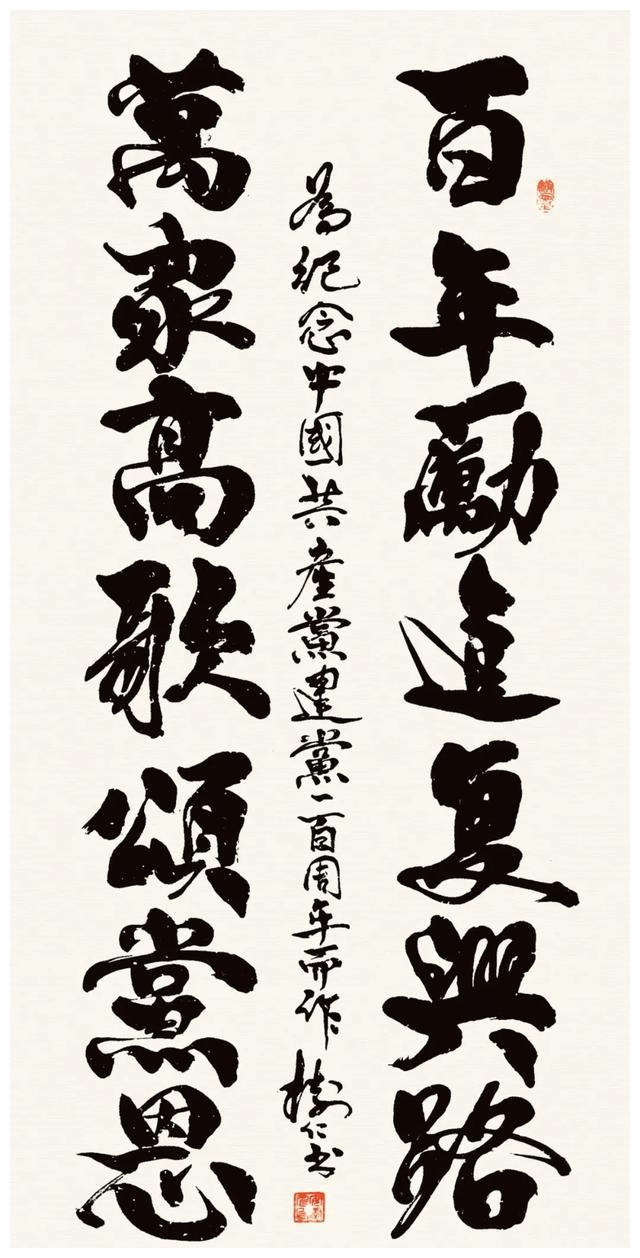 百年勵進复興路
為紀念中國共産黨建黨一百周年而作 樹仁书
萬衆高歌頌黨恩